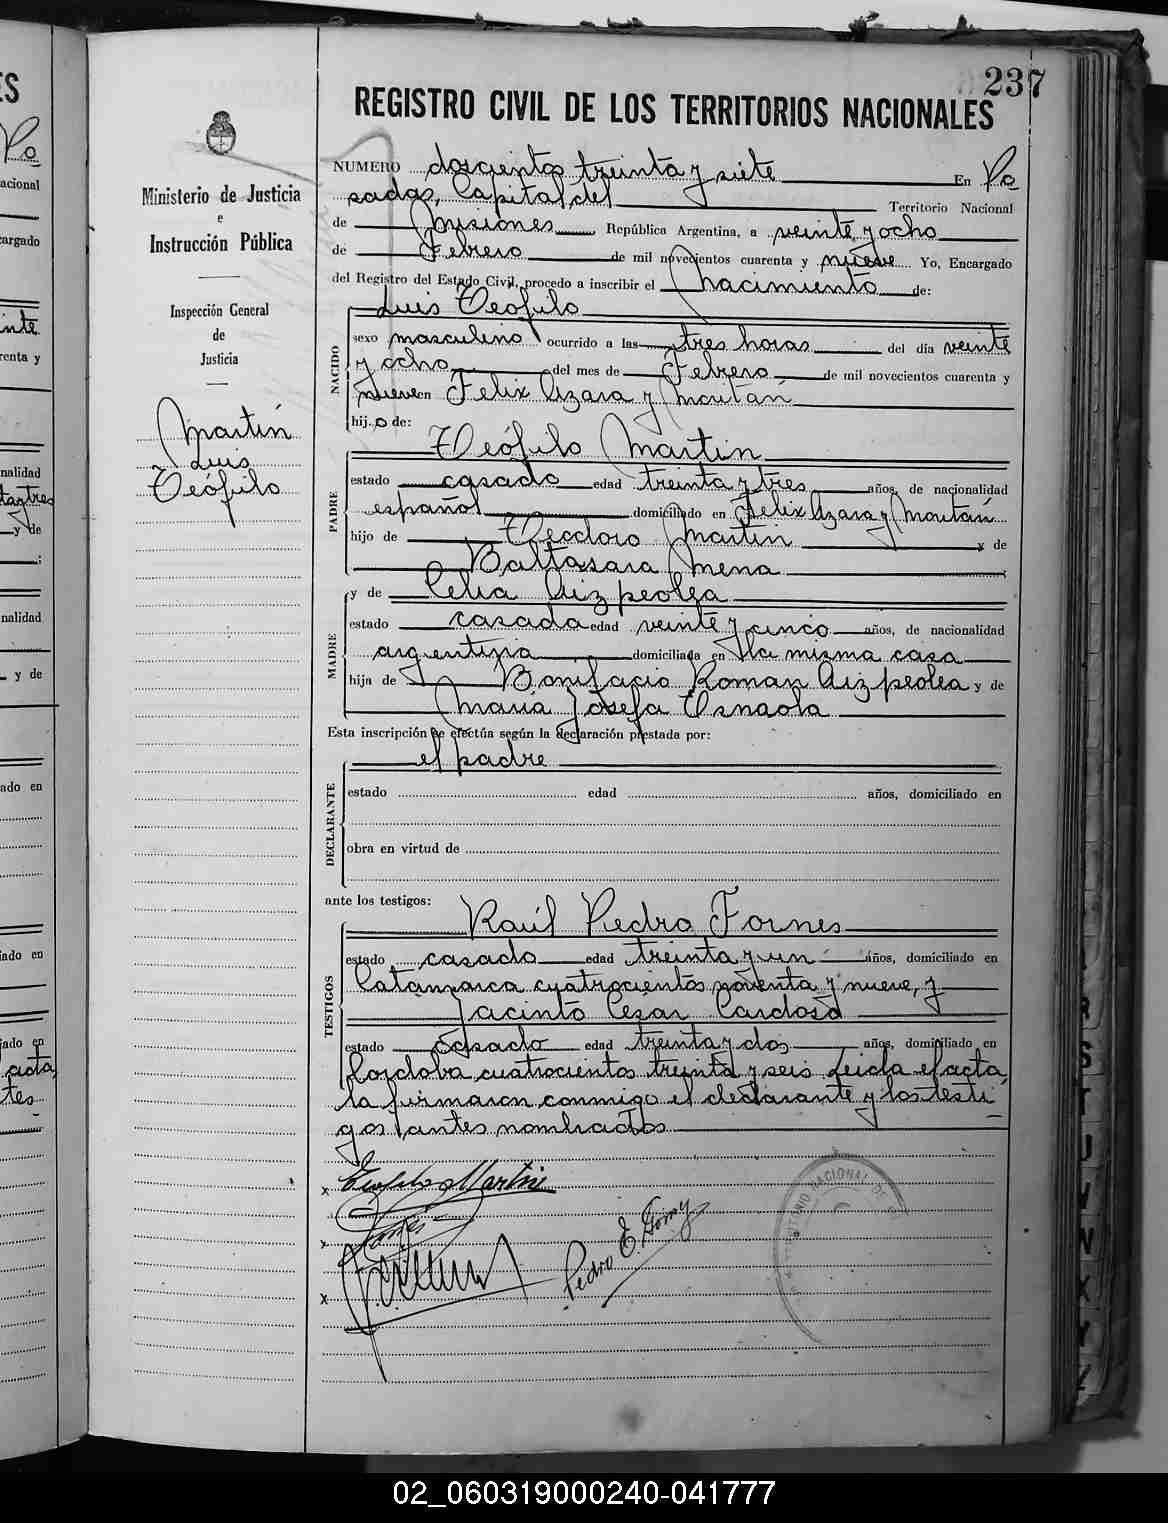 237
REGISTRO CIVIL DE LOS TERRITORIOS NACIONALES
Ministerio de Justicia
e
Instrucción Pública
Inspección General
de
Justicia
Martín
Luis
Teófilo
NUMERO doscientos treinta y siete En Po
sadas, Capital del Territorio Nacional
de Misiones República Argentina, a veinte y ocho
de Febrero de mil novecientos cuarenta y nueve Yo, Encargado
del Registro del Estado Civil, procedo a inscribir el Nacimiento de:
Luis Teófilo
NACIDO
sexo masculino ocurrido a las tres horas del día veinte
y ocho del mes de Febrero de mil novecientos cuarenta y
nueve en Felix Azara y Moritán
hijo de:
Teófilo Martin
PADRE
estado casado edad treinta y tres años, de nacionalidad
español domiciliado en Felix Azara y Moritán
hijo de Teodoro Martin y de
Baltasara Mena
y de Celia Aizpeolea
MADRE
estado casada edad veinte y cinco años, de nacionalidad
argentina domiciliada en la misma casa
hija de Bonifacio Roman Aizpeolea y de
Maria Josefa Ornaola
Esta inscripción se efectúa según la declaración prestada por:
el padre
DECLARANTE
estado edad años, domiciliado en
obra en virtud de
ante los testigos:
Raúl Pedro Fornes
TESTIGOS
estado casado edad treinta y un años, domiciliado en
Catamarca cuatrocientos noventa y nueve, y
Jacinto Cesar Cardoso
estado casado edad treinta y dos años, domiciliado en
Cordoba cuatrocientos treinta y seis Leida el acta,
la firmaron conmigo el declarante y los testi-
gos antes nombrados
x Teofilo Martin
x
x
Pedro E.
02_060319000240-041777